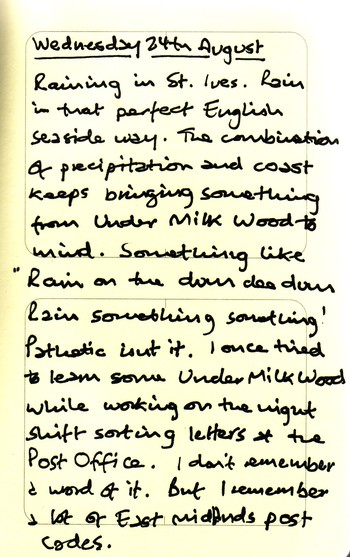 Wednesday 24th August
Raining in St. Ives. Rain
in that perfect English
seaside way. The combination
of precipitation and coast
keeps bringing something
from Under Milk Wood to
mind. Something like
"Rain on the dum dee dum
Rain something something!
Pathetic isn't it. I once tried
to learn some Under Milk Wood
while working on the night
shift sorting letters at the
Post Office. I don't remember
a word of it. But I remember
a lot of East midlands post
codes.